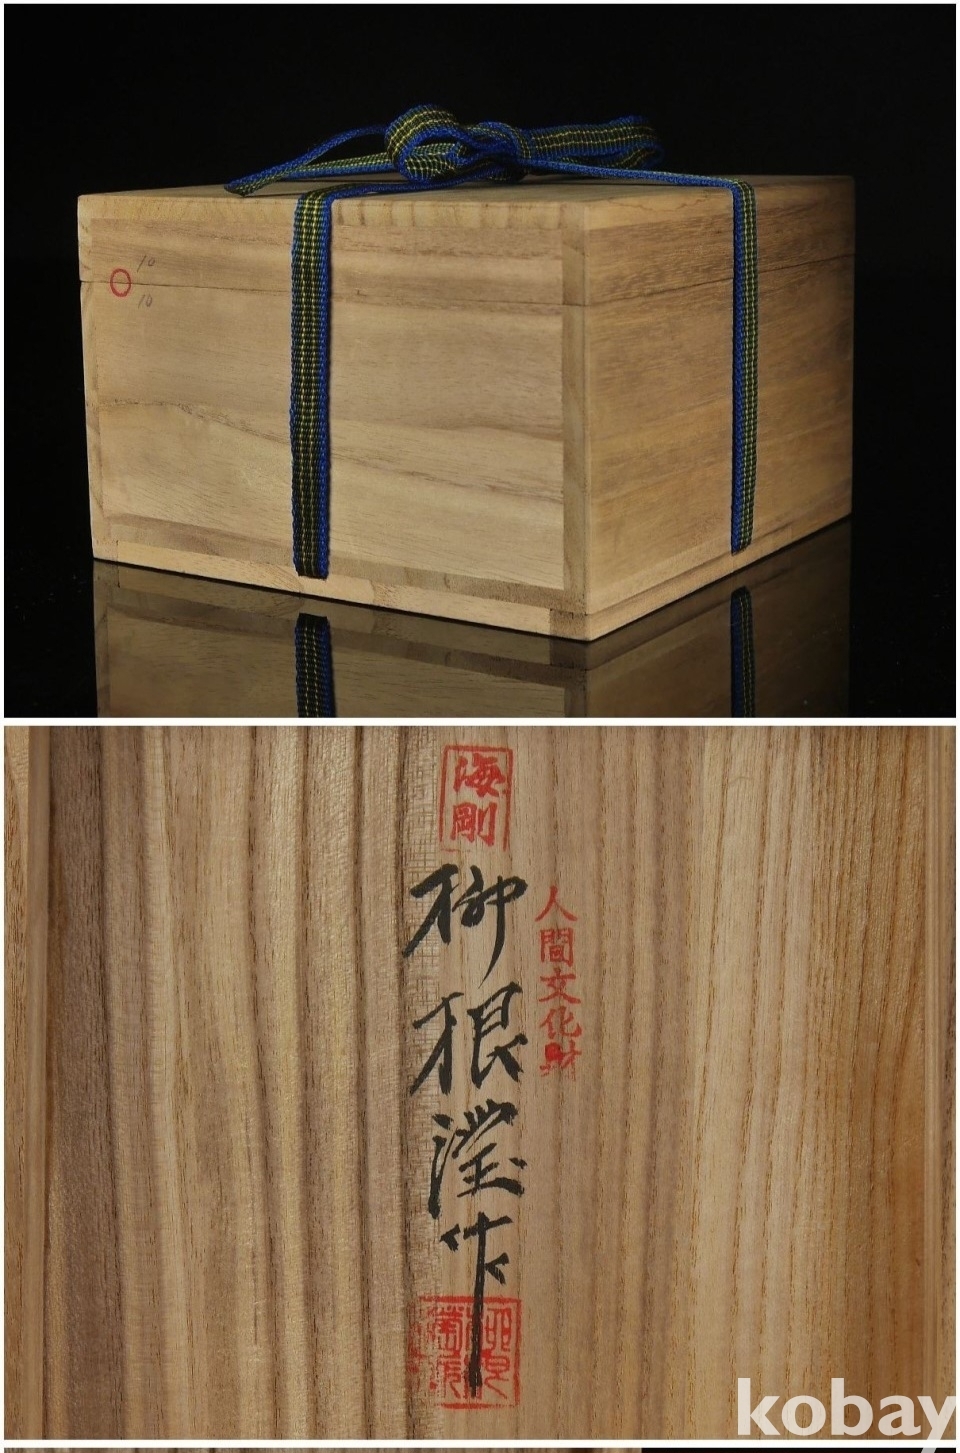 10
10
海
剛
柳根瀅作
人間文化財
kobay